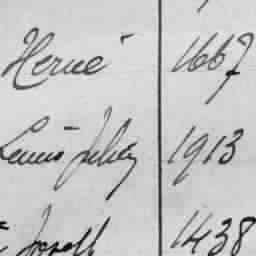 Hervé 1667
Louis Jules 1913
Joseph 1438